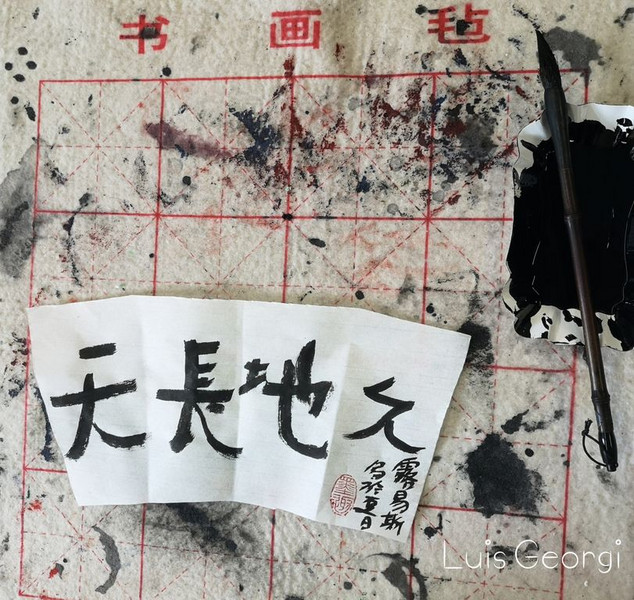 书画毡
天長地久
露易斯
Luis Georgi